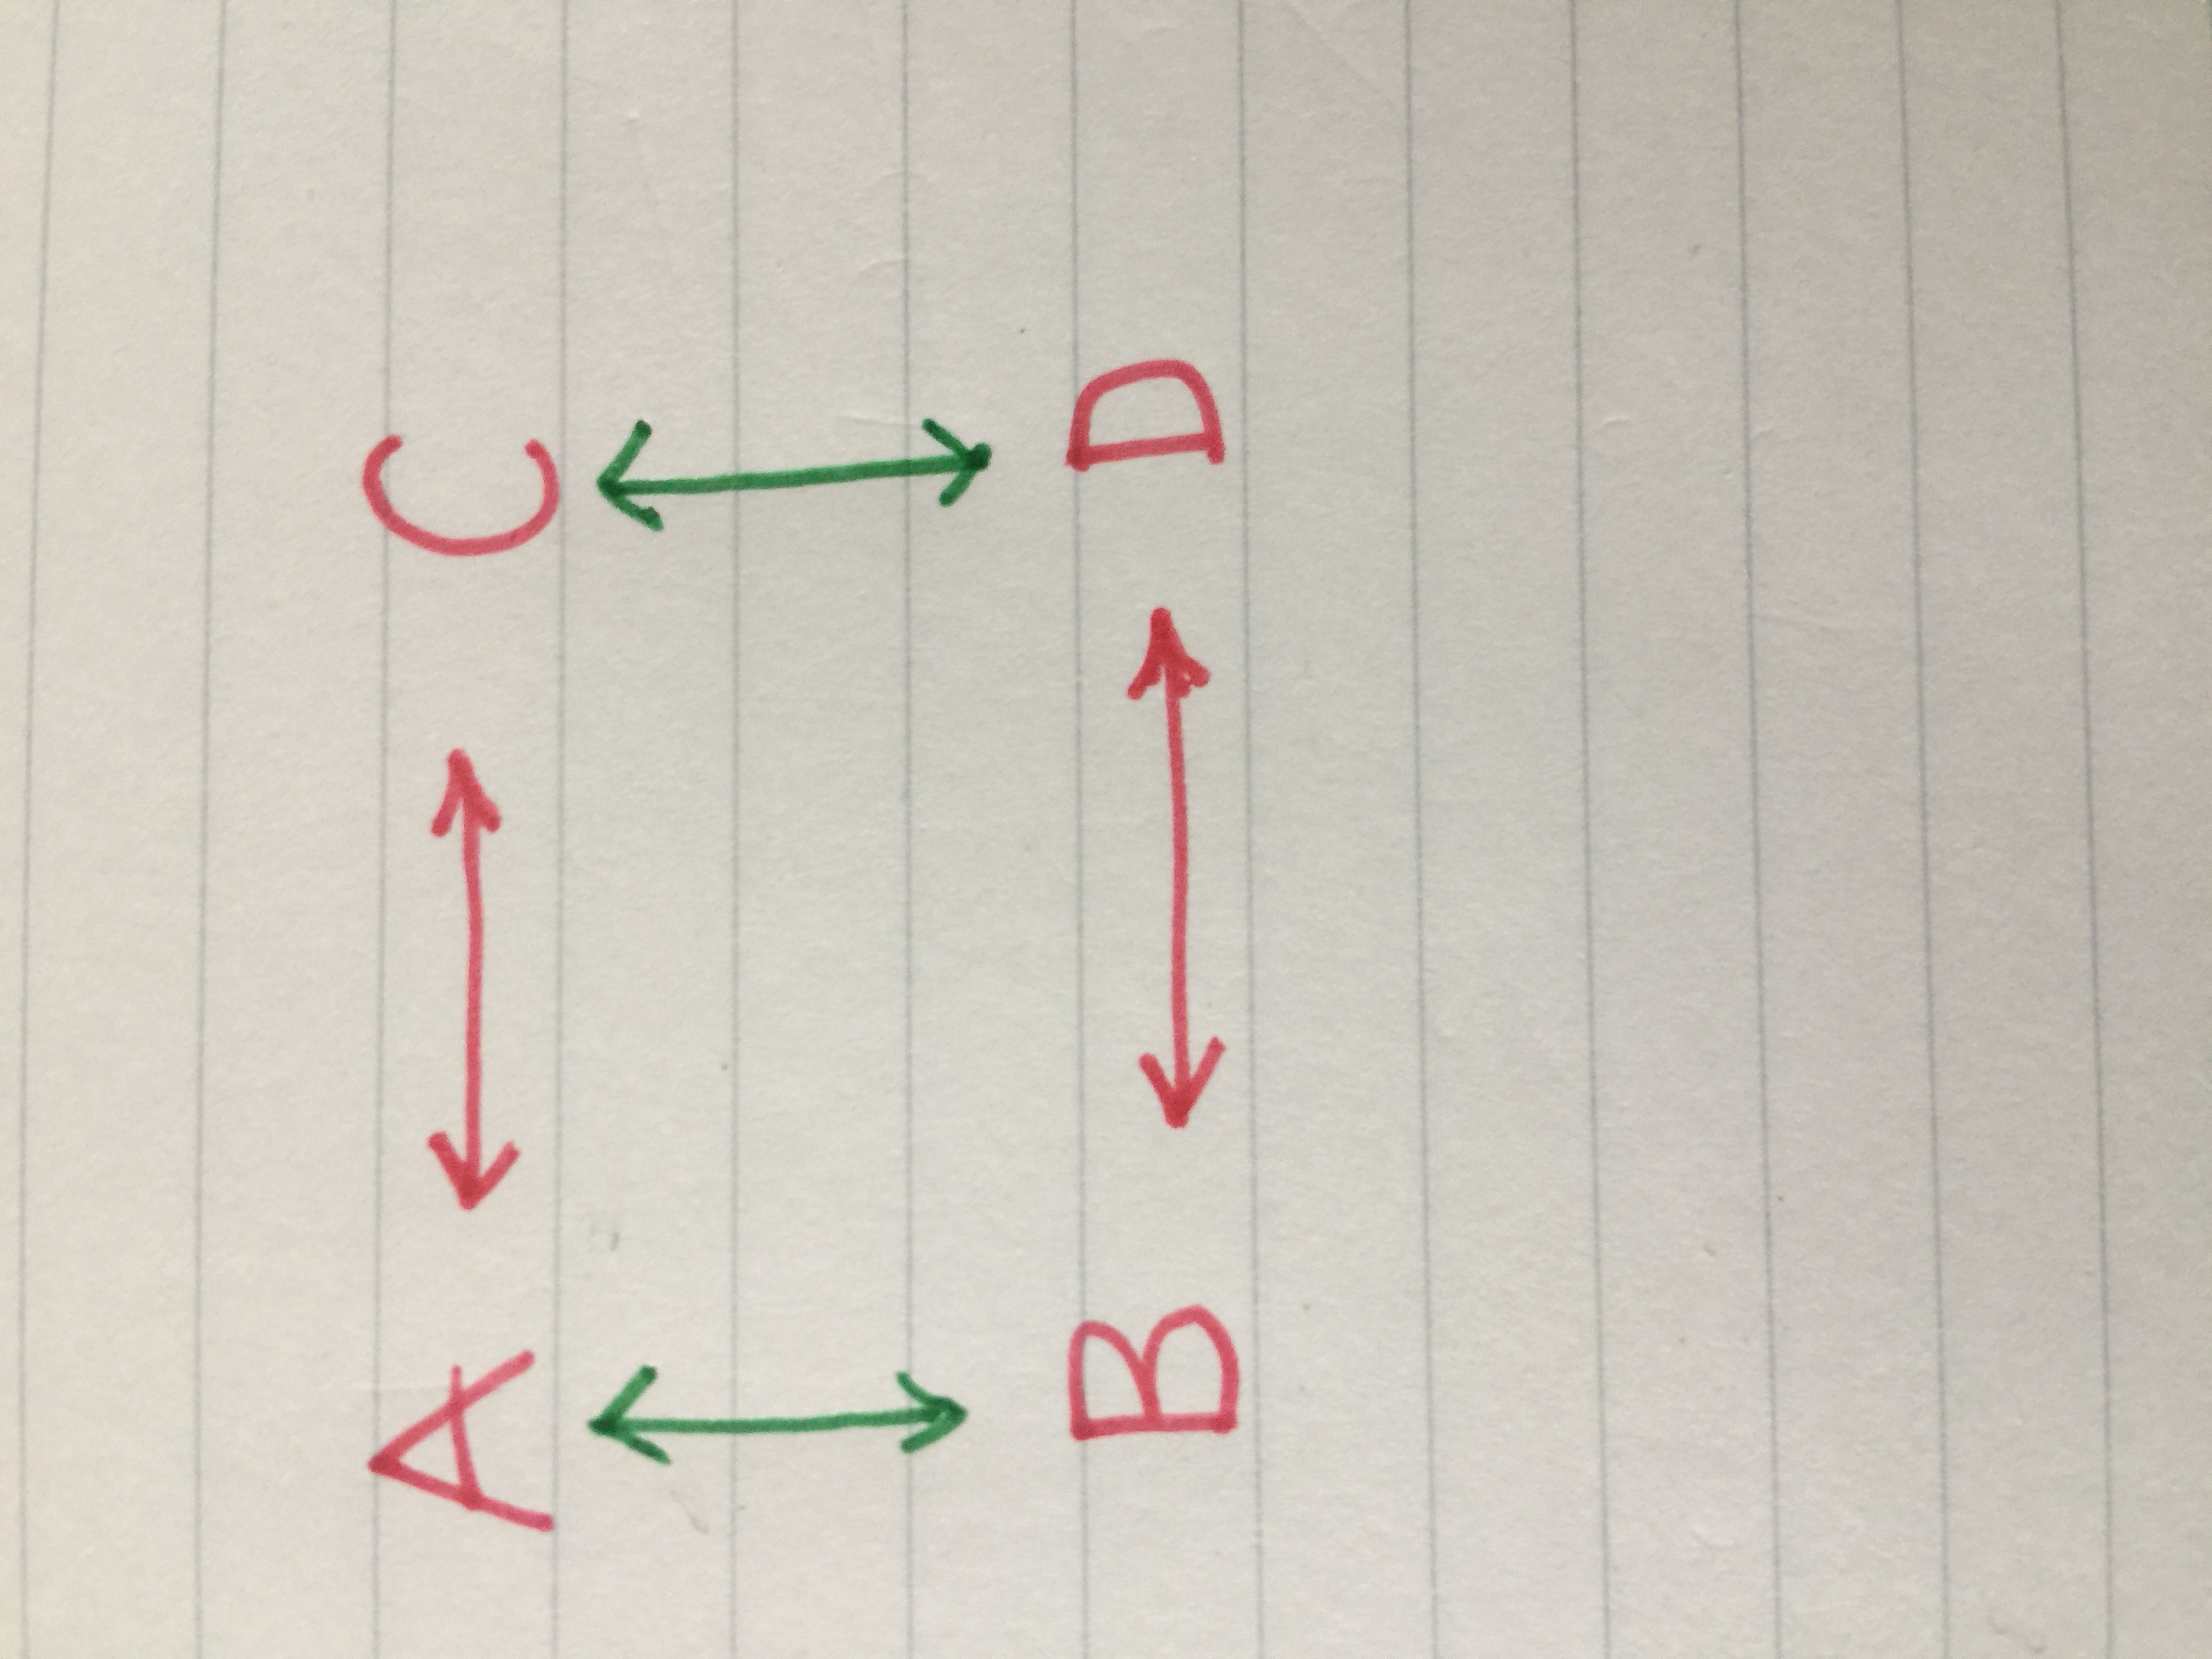 A ↔ C
↕ ↕
B ↔ D